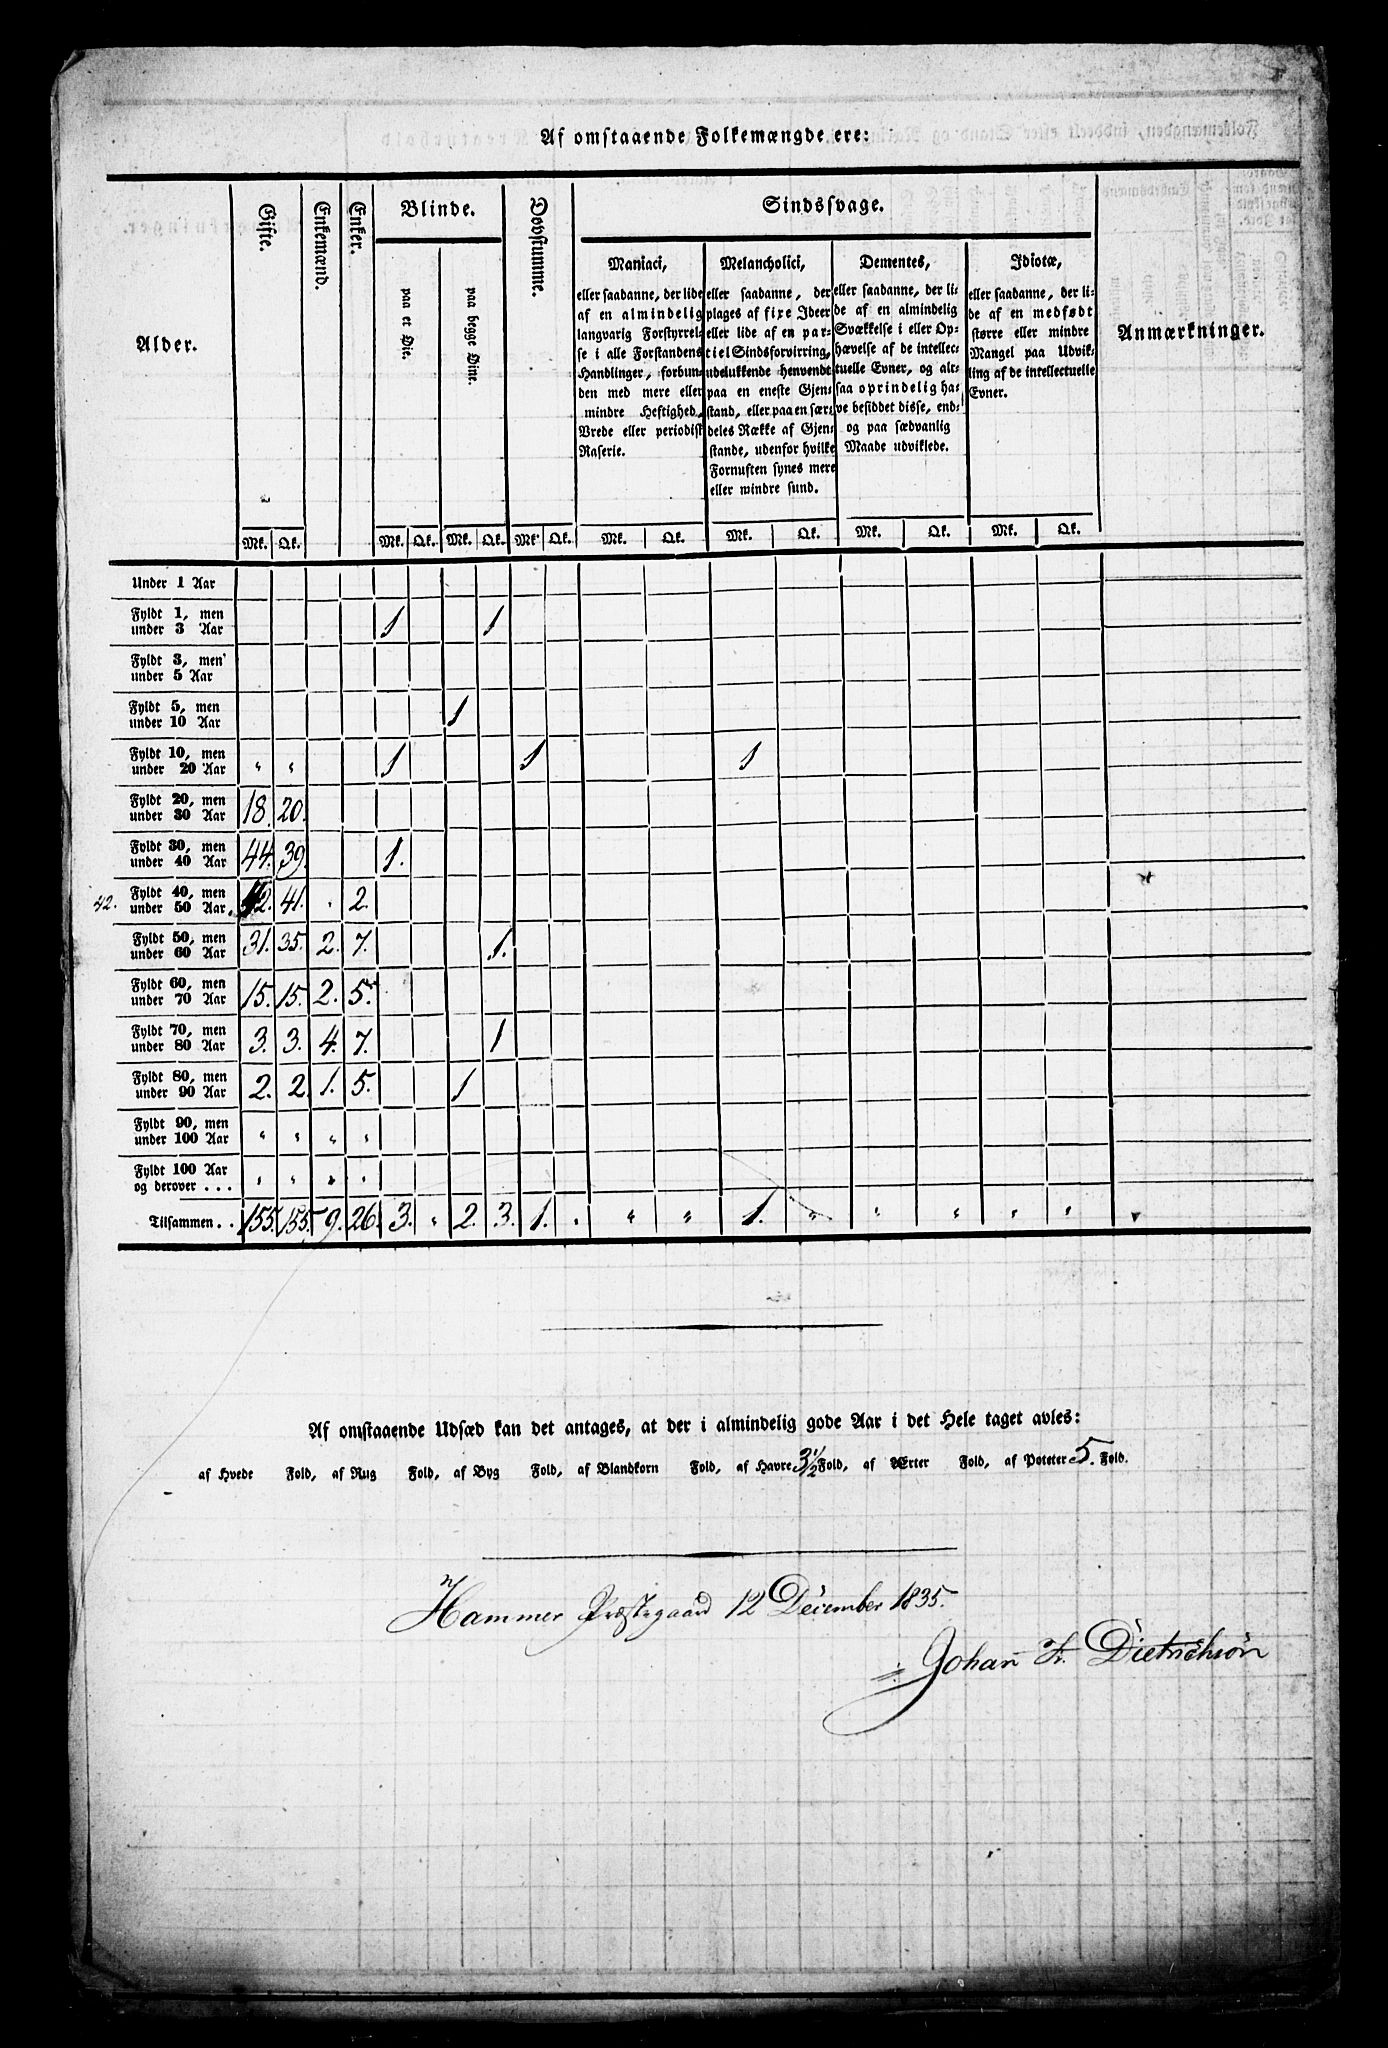 Af omstaaende Folkemængde ere:
Alder. | Gifte. | Enkemænd. | Enker. | Blinde. | Døvstumme. | Sindssvage. | Anmærkninger.
paa et Øie. | paa begge Øine.
Maniaci,
eller saadanne, der lide
af en almindelig
langvarig Forstyrrel-
se i alle Forstandens
Handlinger, forbun-
den med mere eller
mindre Heftighed,
Vrede eller periodisk
Raserie.
Melancholici,
eller saadanne, der
plages af fixe Ideer
eller lide af en par-
tiel Sindsforvirring,
udelukkende henvendt
paa en eneste Gjen-
stand, eller paa en sær-
deles Række af Gjen-
stande, udenfor hvilke
Fornuften synes mere
eller mindre sund.
Dementes,
eller saadanne, der li-
de af en almindelig
Svækkelse i eller Op-
hævelse af de intellec-
tuelle Evner, og alt-
saa oprindelig ha-
ve besiddet disse, end-
og paa sædvanlig
Maade udviklede.
Idiotæ,
eller saadanne, der li-
de af en medfødt
større eller mindre
Mangel paa Udvik-
ling af de intellectuelle
Evner.
Mk. Qk. Mk. Qk. Mk. Qk. Mk. Qk. Mk. Qk. Mk. Qk. Mk. Qk. Mk. Qk.
Under 1 Aar
Fyldt 1, men
under 3 Aar 1 1
Fyldt 3, men
under 5 Aar
Fyldt 5, men
under 10 Aar 1
Fyldt 10, men
under 20 Aar " " 1 1 1
Fyldt 20, men
under 30 Aar 18. 20.
Fyldt 30, men
under 40 Aar 44. 39. 1.
Fyldt 40, men
42. under 50 Aar. 42. 41. . 2.
Fyldt 50, men
under 60 Aar 31. 35. 2. 7. 1.
Fyldt 60, men
under 70 Aar 15. 15. 2. 5.
Fyldt 70, men
under 80 Aar 3. 3. 4. 7. 1
Fyldt 80, men
under 90 Aar 2. 2. 1. 5. 1
Fyldt 90, men
under 100 Aar " " " "
Fyldt 100 Aar
og derover . . . " " " "
Tilsammen . . 155. 155. 9. 26. 3. " 2. 3. 1. " " " 1. " " " " "
Af omstaaende Udsæd kan det antages, at der i almindelig gode Aar i det Hele taget avles:
af Hvede Fold, af Rug Fold, af Byg Fold, af Blandkorn Fold, af Havre 3½ Fold, af Ærter Fold, af Poteter 5. Fold.
Hammer Præstegaard 12 December 1835.
Johan F. Dietrichson